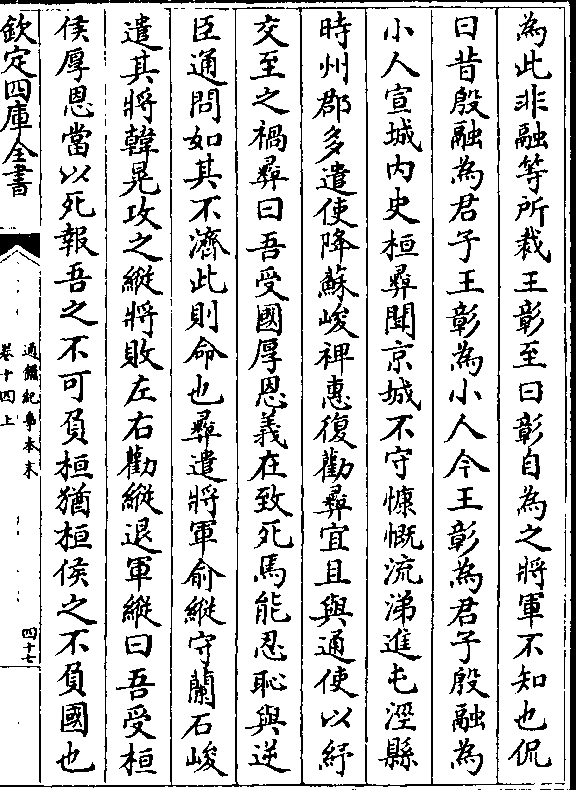 為此非融等所裁王彰至曰彰自為之將軍不知也侃
曰昔殷融為君子王彰為小人今王彰為君子殷融為
小人宣城内史桓彞聞京城不守慷慨流涕進屯涇縣
時州郡多遣使降蘇峻裨惠復勸彞宜且與通使以紓
交至之禍彞曰吾受國厚恩義在致死焉能忍恥與逆
臣通問如其不濟此則命也彞遣將軍俞縱守蘭石峻
遣其將韓晃攻之縱將敗左右勸縱退軍縱曰吾受桓
侯厚恩當以死報吾之不可負桓猶桓侯之不負國也
欽定四庫全書
通鑑紀事本末
卷十四上
四十七